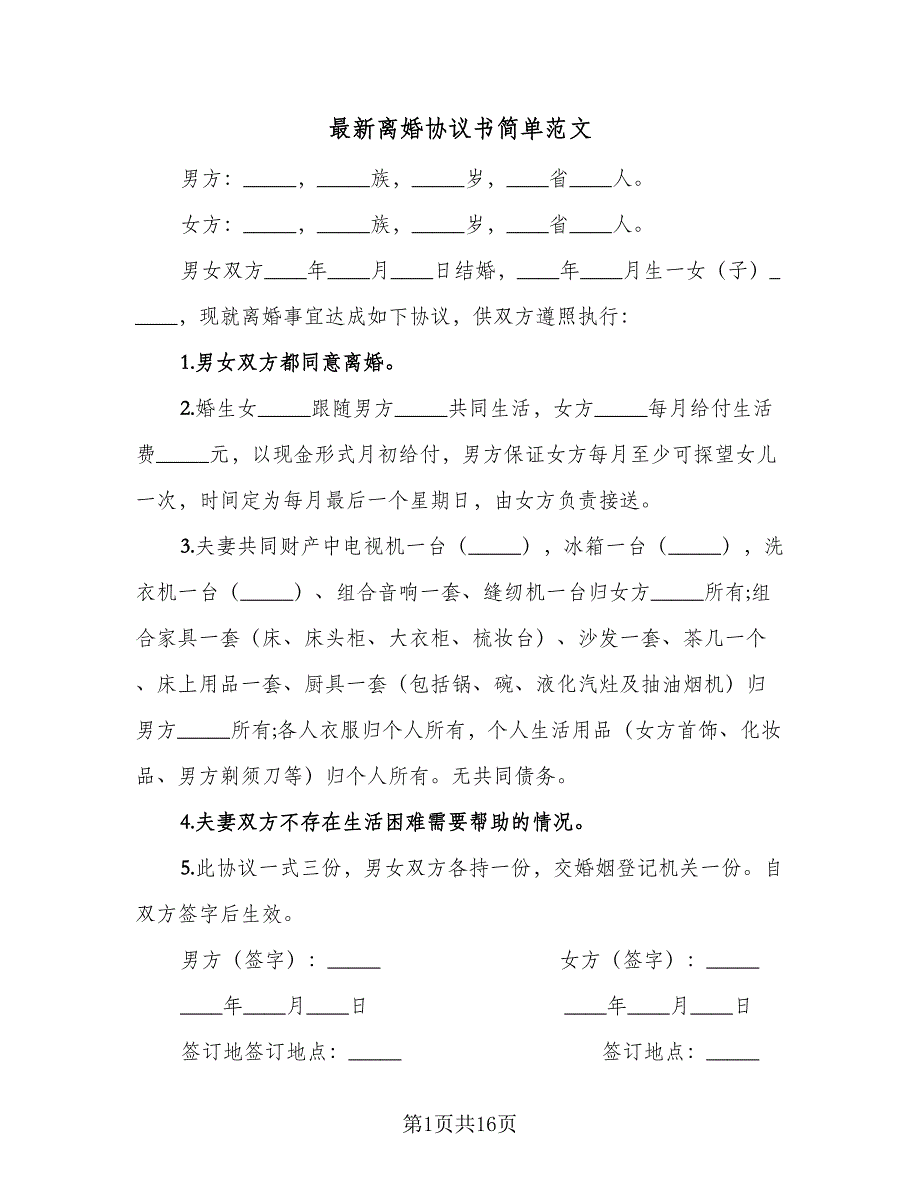 最新离婚协议书简单范文
男方：_____，_____族，_____岁，____省____人。
女方：_____，_____族，_____岁，____省____人。
男女双方____年____月____日结婚，____年____月生一女（子）_
____，现就离婚事宜达成如下协议，供双方遵照执行：
1.男女双方都同意离婚。
2.婚生女_____跟随男方_____共同生活，女方_____每月给付生活
费_____元，以现金形式月初给付，男方保证女方每月至少可探望女儿
一次，时间定为每月最后一个星期日，由女方负责接送。
3.夫妻共同财产中电视机一台（_____），冰箱一台（_____），洗
衣机一台（_____）、组合音响一套、缝纫机一台归女方_____所有;组
合家具一套（床、床头柜、大衣柜、梳妆台）、沙发一套、茶几一个
、床上用品一套、厨具一套（包括锅、碗、液化汽灶及抽油烟机）归
男方_____所有;各人衣服归个人所有，个人生活用品（女方首饰、化妆
品、男方剃须刀等）归个人所有。无共同债务。
4.夫妻双方不存在生活困难需要帮助的情况。
5.此协议一式三份，男女双方各持一份，交婚姻登记机关一份。自
双方签字后生效。
男方（签字）：_____ 女方（签字）：_____
____年____月____日 ____年____月____日
签订地签订地点：_____ 签订地点：_____
第1页共16页